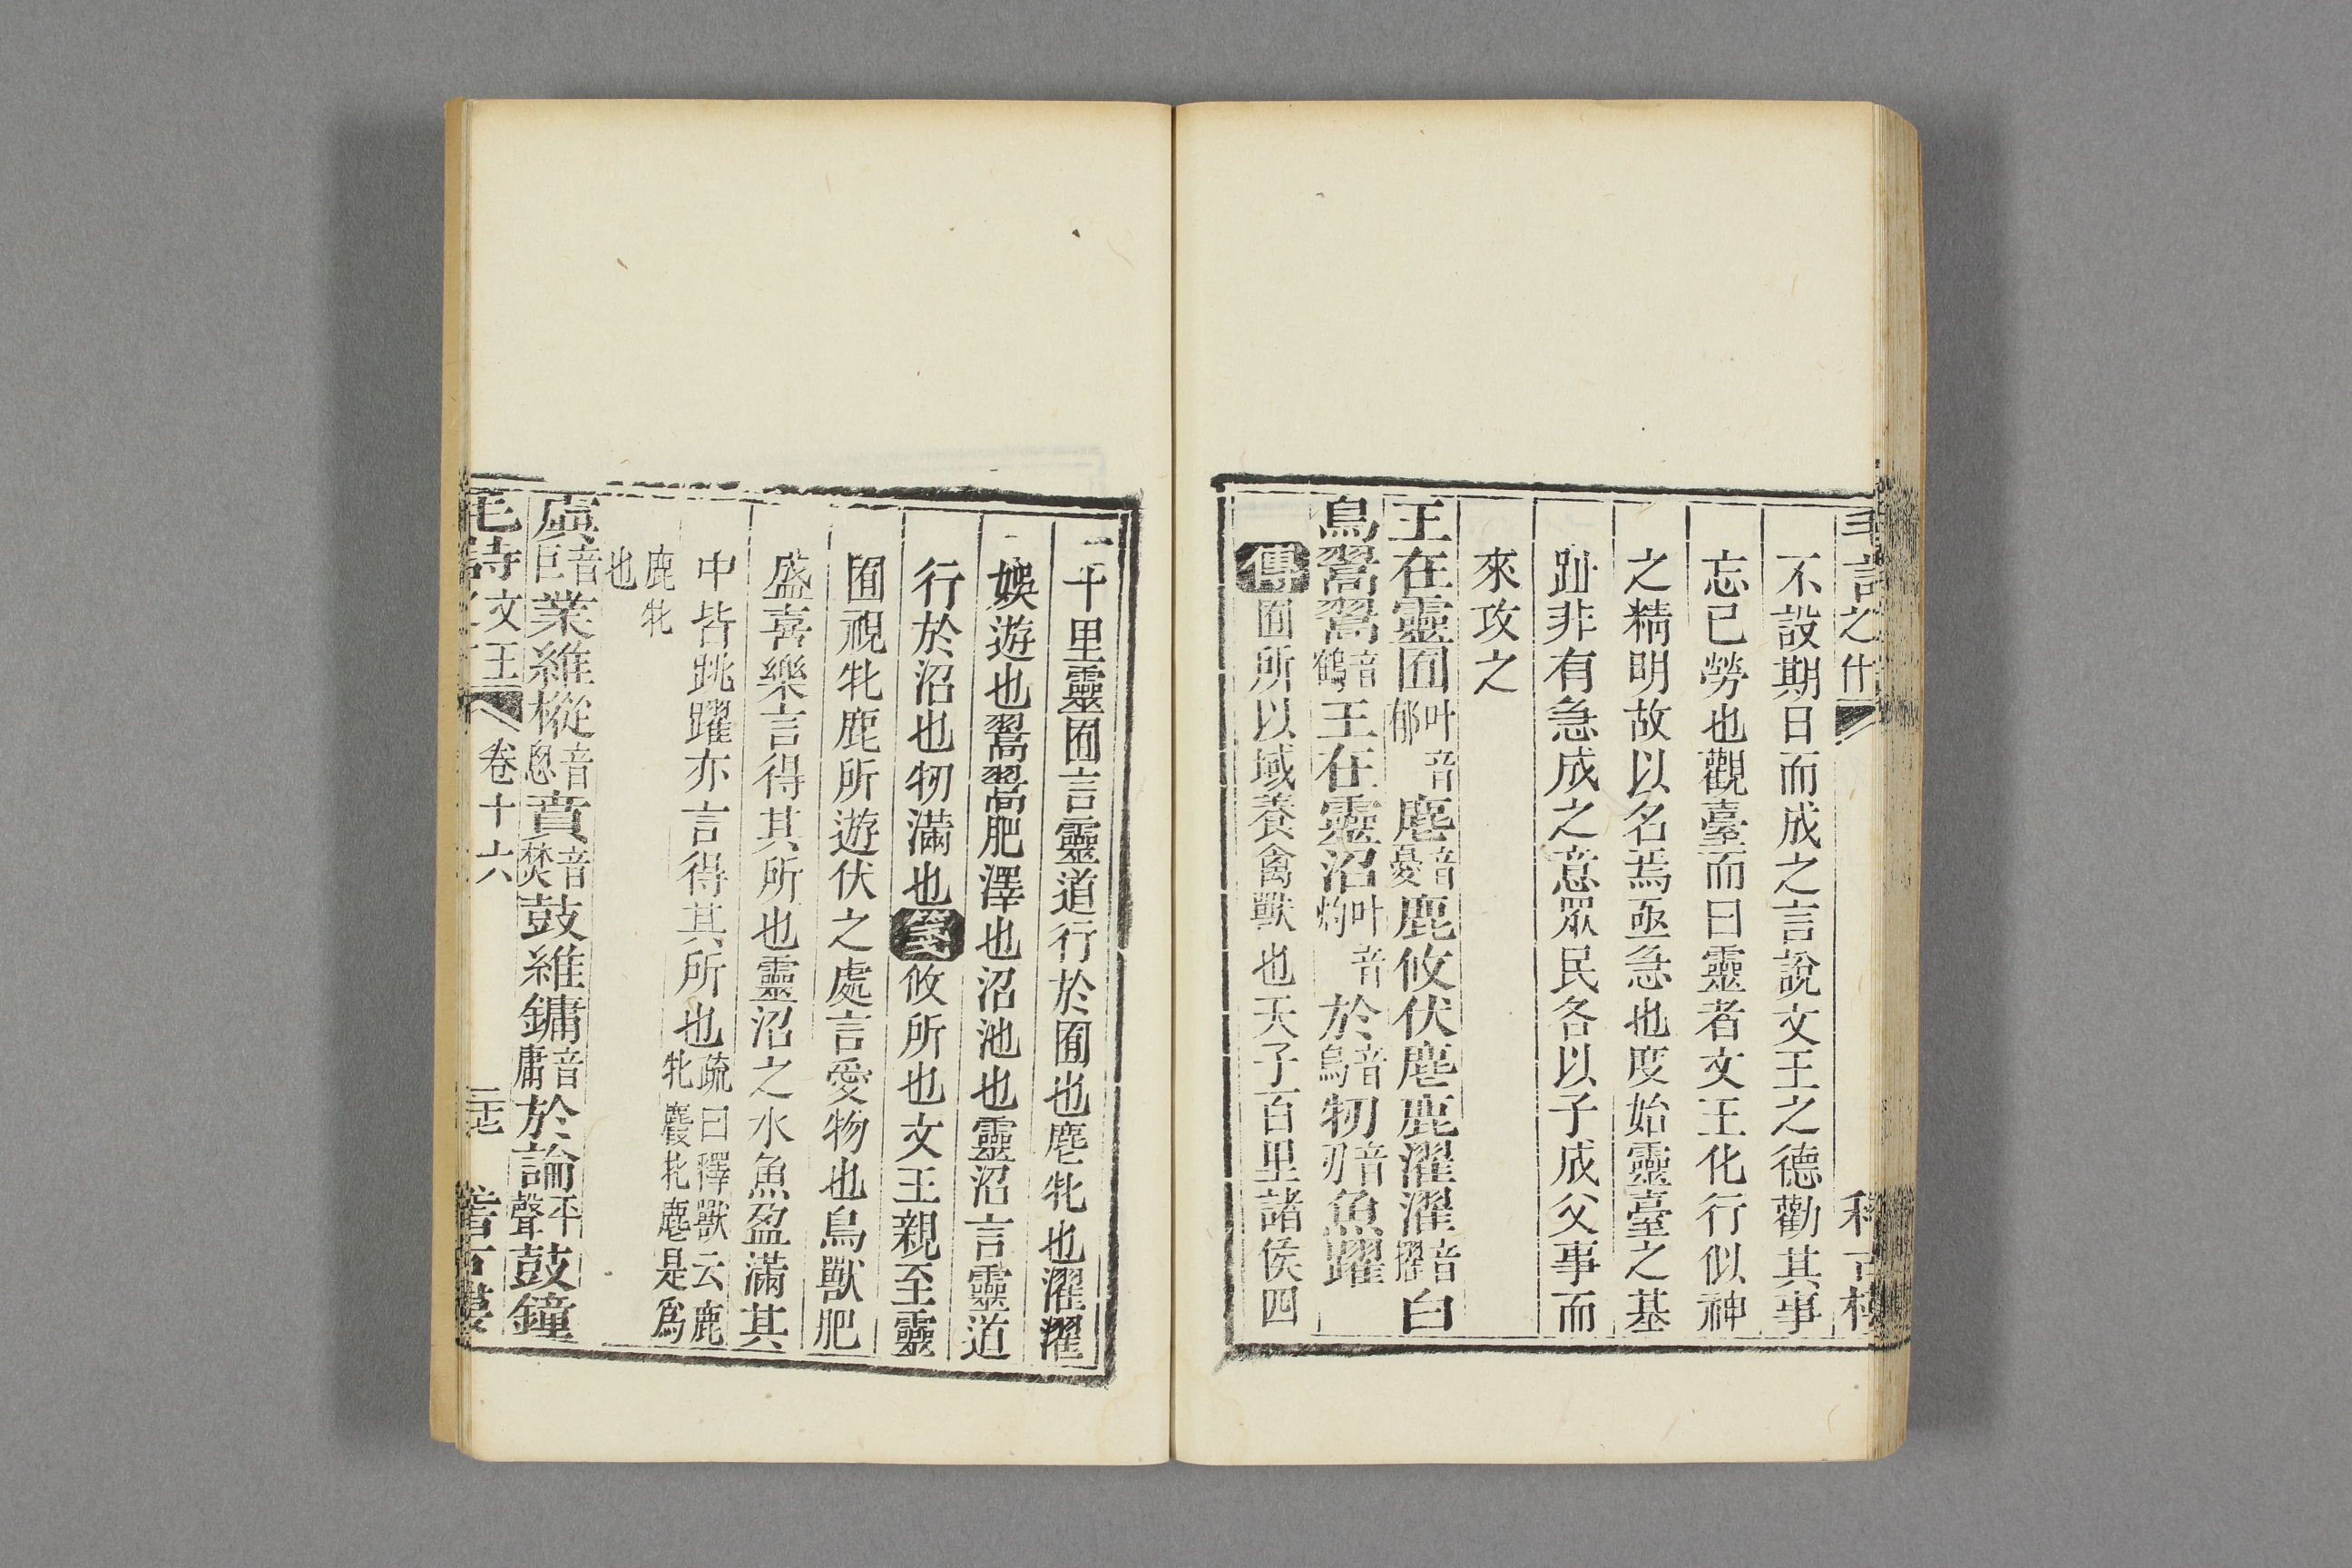 毛詩之什 稽古樓
不設期日而成之言說文王之德勸其事
忘已勞也觀臺而曰靈者文王化行似神
之精明故以名焉亟急也度始靈臺之基
趾非有急成之意眾民各以子成父事而
來攻之
王在靈囿叶音郁麀音憂鹿攸伏麀鹿濯濯音擢白
鳥翯翯音鶴王在靈沼叶音灼於音烏牣音刃魚躍
傳囿所以域養禽獸也天子百里諸侯四
十里靈囿言靈道行於囿也麀牝也濯濯
娛遊也翯翯肥澤也沼池也靈沼言靈道
行於沼也牣滿也箋攸所也文王親至靈
囿視牝鹿所遊伏之處言愛物也鳥獸肥
盛喜樂言得其所也靈沼之水魚盈滿其
中皆跳躍亦言得其所也疏曰釋獸云鹿牝麚牝麀是為
鹿牝也
虡音巨業維樅音怱賁音焚鼓維鏞音庸於論平聲鼓鐘
毛詩文王 卷十六 稽古樓